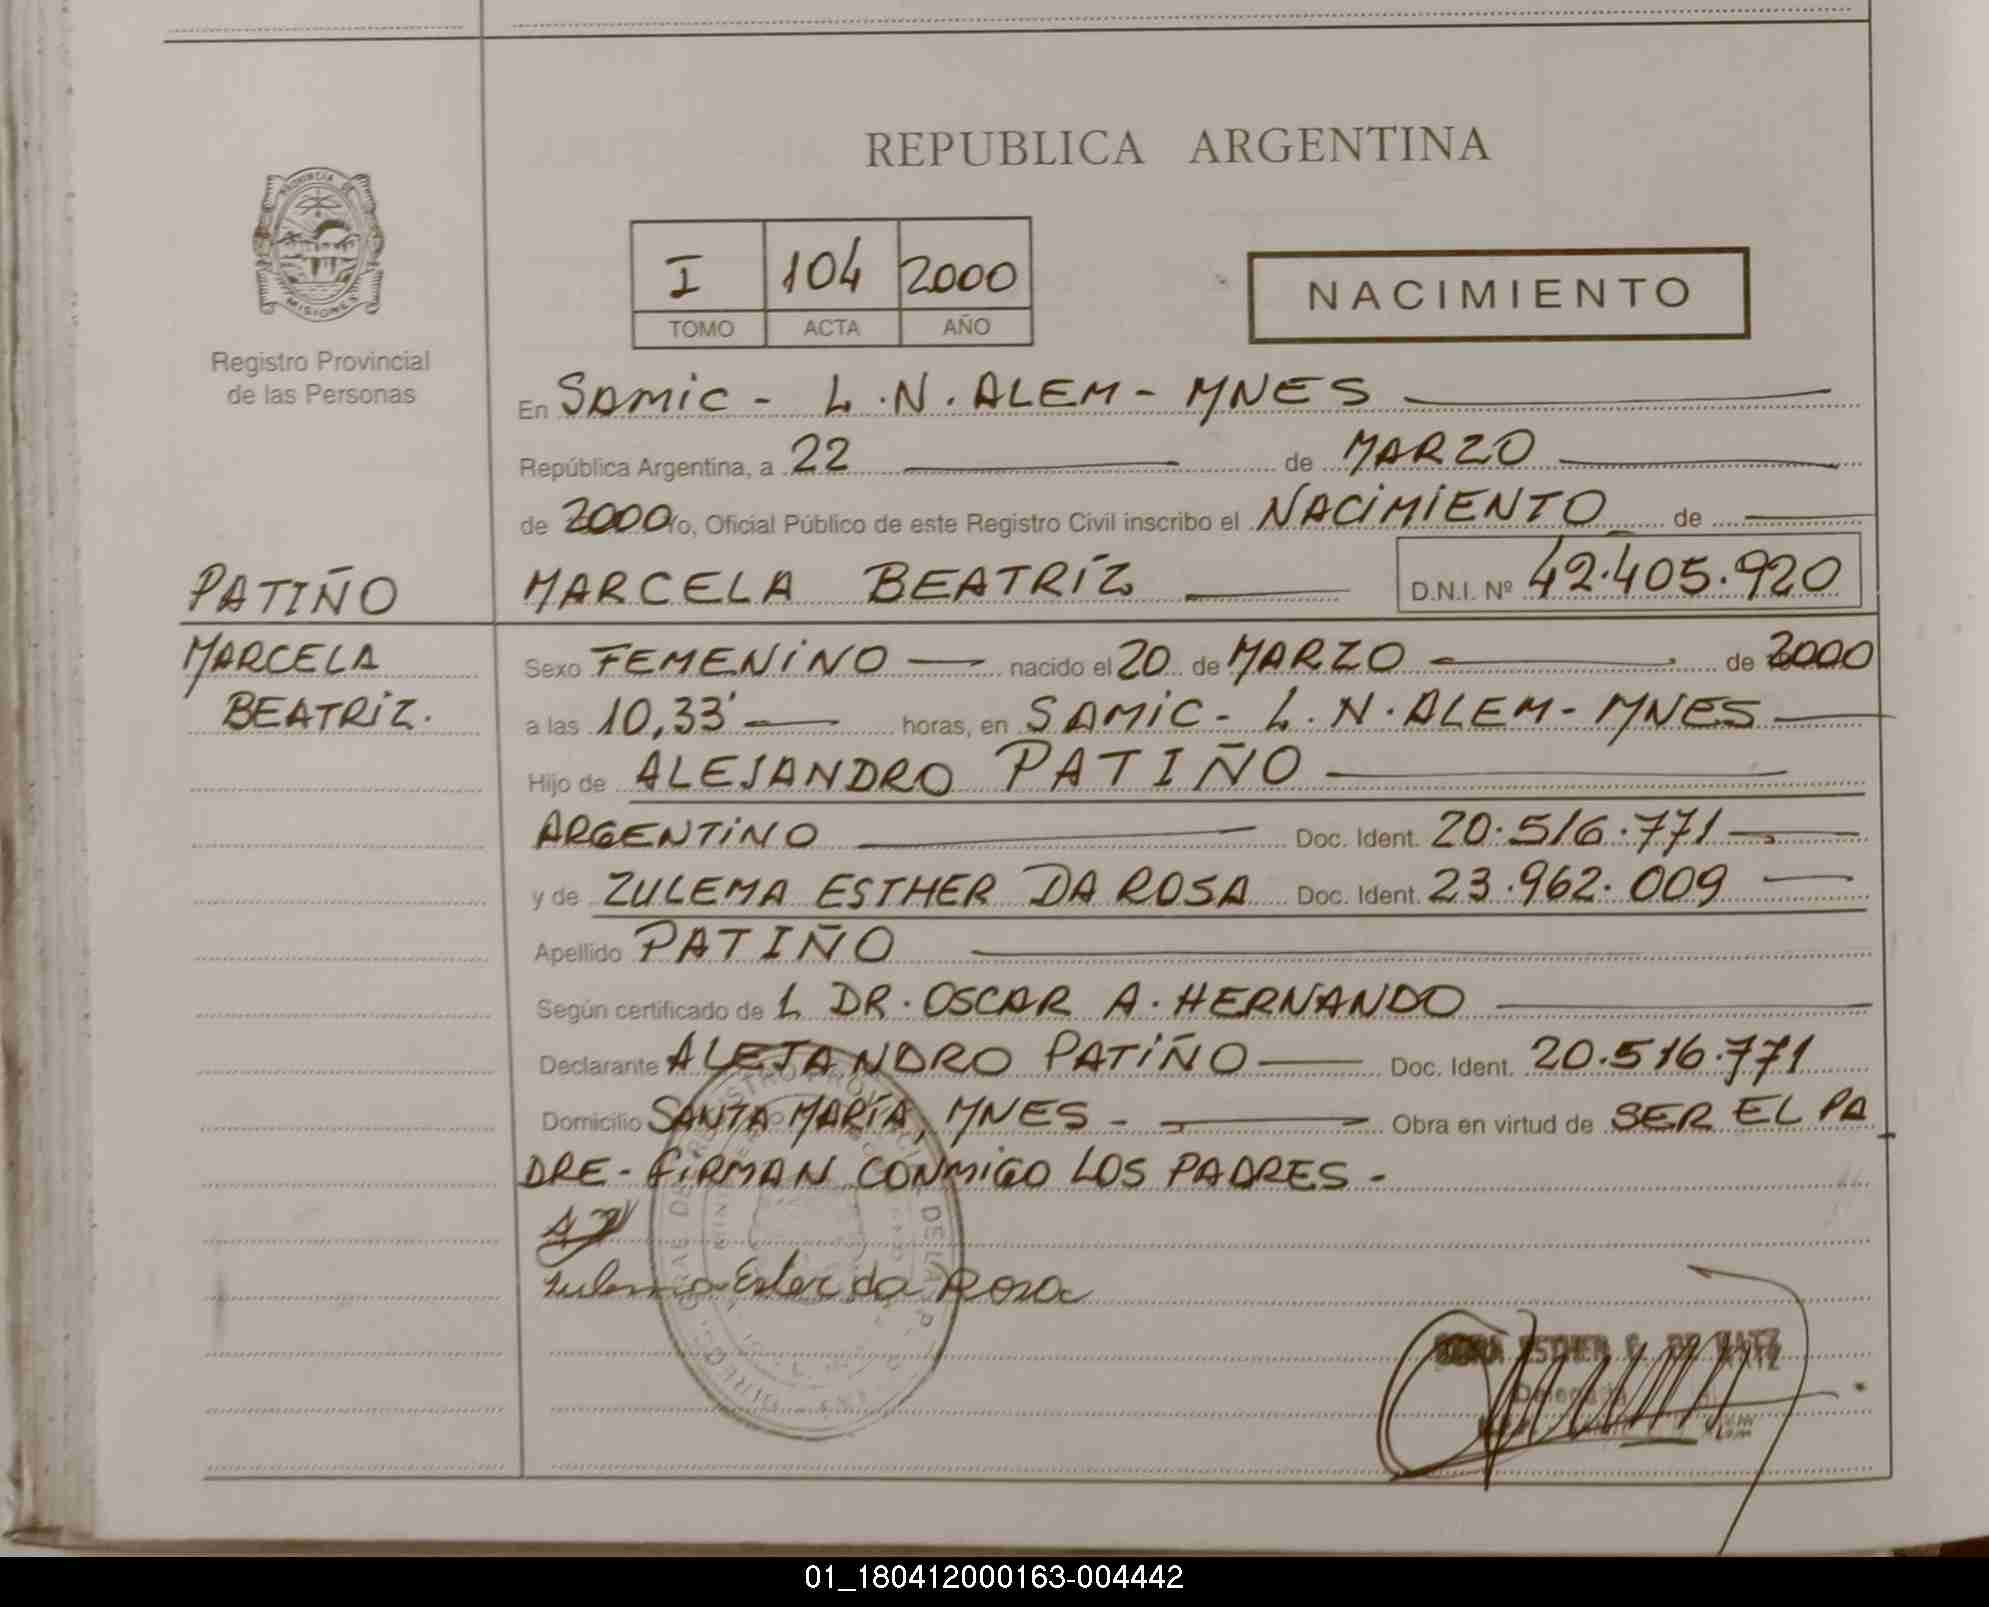 REPUBLICA ARGENTINA
PROVINCIA DE
MISIONES
I 104 2000
TOMO ACTA AÑO
NACIMIENTO
Registro Provincial
de las Personas
En SAMIC - L.N. ALEM - MNES
República Argentina, a 22 de MARZO
de 2000 Yo, Oficial Público de este Registro Civil inscribo el NACIMIENTO de
MARCELA BEATRÍZ D.N.I. Nº 42.405.920
PATIÑO
MARCELA
BEATRIZ.
Sexo FEMENINO nacido el 20 de MARZO de 2000
a las 10,33' horas, en SAMIC - L.N. ALEM - MNES
Hijo de ALEJANDRO PATIÑO
ARGENTINO Doc. Ident. 20.516.771
y de ZULEMA ESTHER DA ROSA Doc. Ident. 23.962.009
Apellido PATIÑO
Según certificado de L DR. OSCAR A. HERNANDO
Declarante ALEJANDRO PATIÑO Doc. Ident. 20.516.771
Domicilio SANTA MARÍA, MNES - Obra en virtud de SER EL PA
DRE - FIRMAN CONMIGO LOS PADRES -
Zulema Ester da Rosa
ESTHER
Delegada
01_180412000163-004442